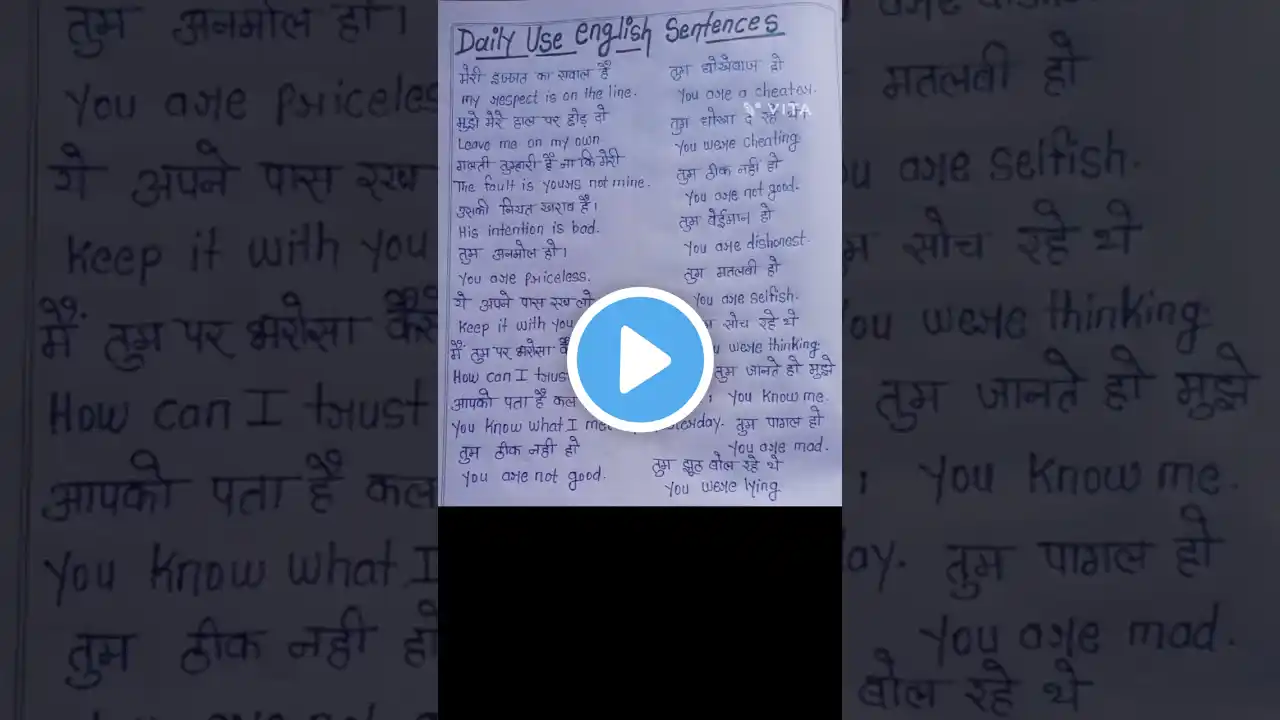 Daily Use English Sentences
मेरी इज्जत का सवाल है
my respect is on the line.
मुझे मेरे हाल पर छोड़ दो
Leave me on my own
गलती तुम्हारी है ना कि मेरी
The fault is yours not mine.
उसकी नियत खराब है।
His intention is bad.
तुम अनमोल हो।
You are priceless.
ये अपने पास रख लो
Keep it with you
मैं तुम पर भरोसा
How can I trust
आपको पता है कल
You know what I
तुम ठीक नही हो
You are not good.
तुम धोखेबाज हो
You are a cheater.
VITA
तुम धोखा दे रहे थे
You were cheating
तुम ठीक नहीं हो
You are not good.
तुम बेईमान हो
You are dishonest.
तुम मतलबी हो
You are selfish.
सोच रहे थे
were thinking.
तुम जानते हो मुझे
You know me.
तुम पागल हो
You are mad.
तुम झूठ बोल रहे थे
You were lying